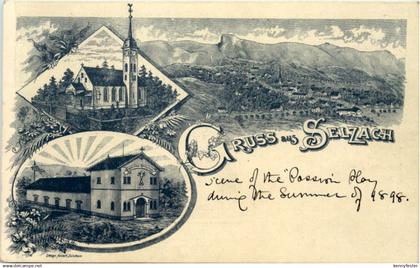 GRUSS aus SELZACH
Scene of the "Passion Play
during the Summer of 1898.
kennyfester